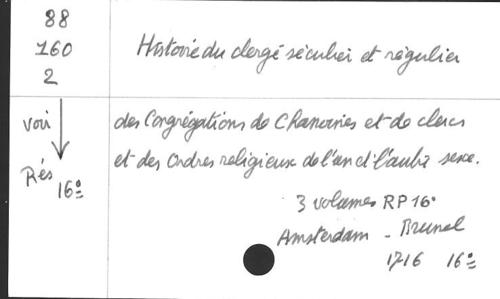 88
160
2
Histoire du clergé séculier et régulier
voir
Rés
16º
des Congrégations de Chanoines et de clercs
et des Ordres religieux de l'un et l'autre sexe.
3 volumes RP 16º
Amsterdam - Brunel
1716 16º